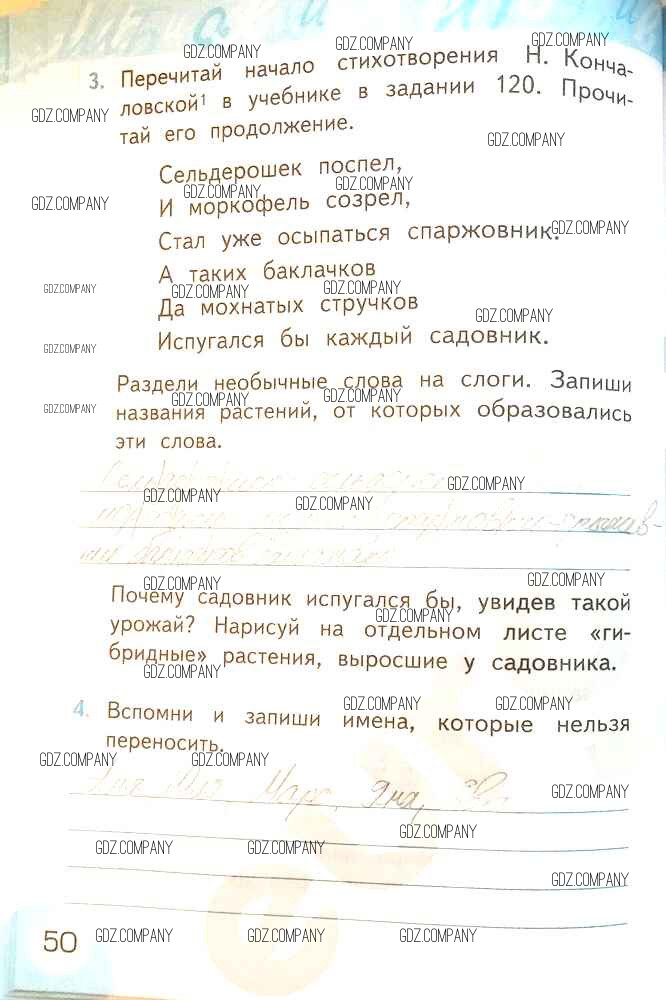 3. Перечитай начало стихотворения Н. Конча-
ловской¹ в учебнике в задании 120. Прочи-
тай его продолжение.
Сельдерошек поспел,
И моркофель созрел,
Стал уже осыпаться спаржовник.
А таких баклачков
Да мохнатых стручков
Испугался бы каждый садовник.
Раздели необычные слова на слоги. Запиши
названия растений, от которых образовались
эти слова.
Почему садовник испугался бы, увидев такой
урожай? Нарисуй на отдельном листе «ги-
бридные» растения, выросшие у садовника.
4. Вспомни и запиши имена, которые нельзя
переносить.
Яна,
50
GDZ.COMPANY